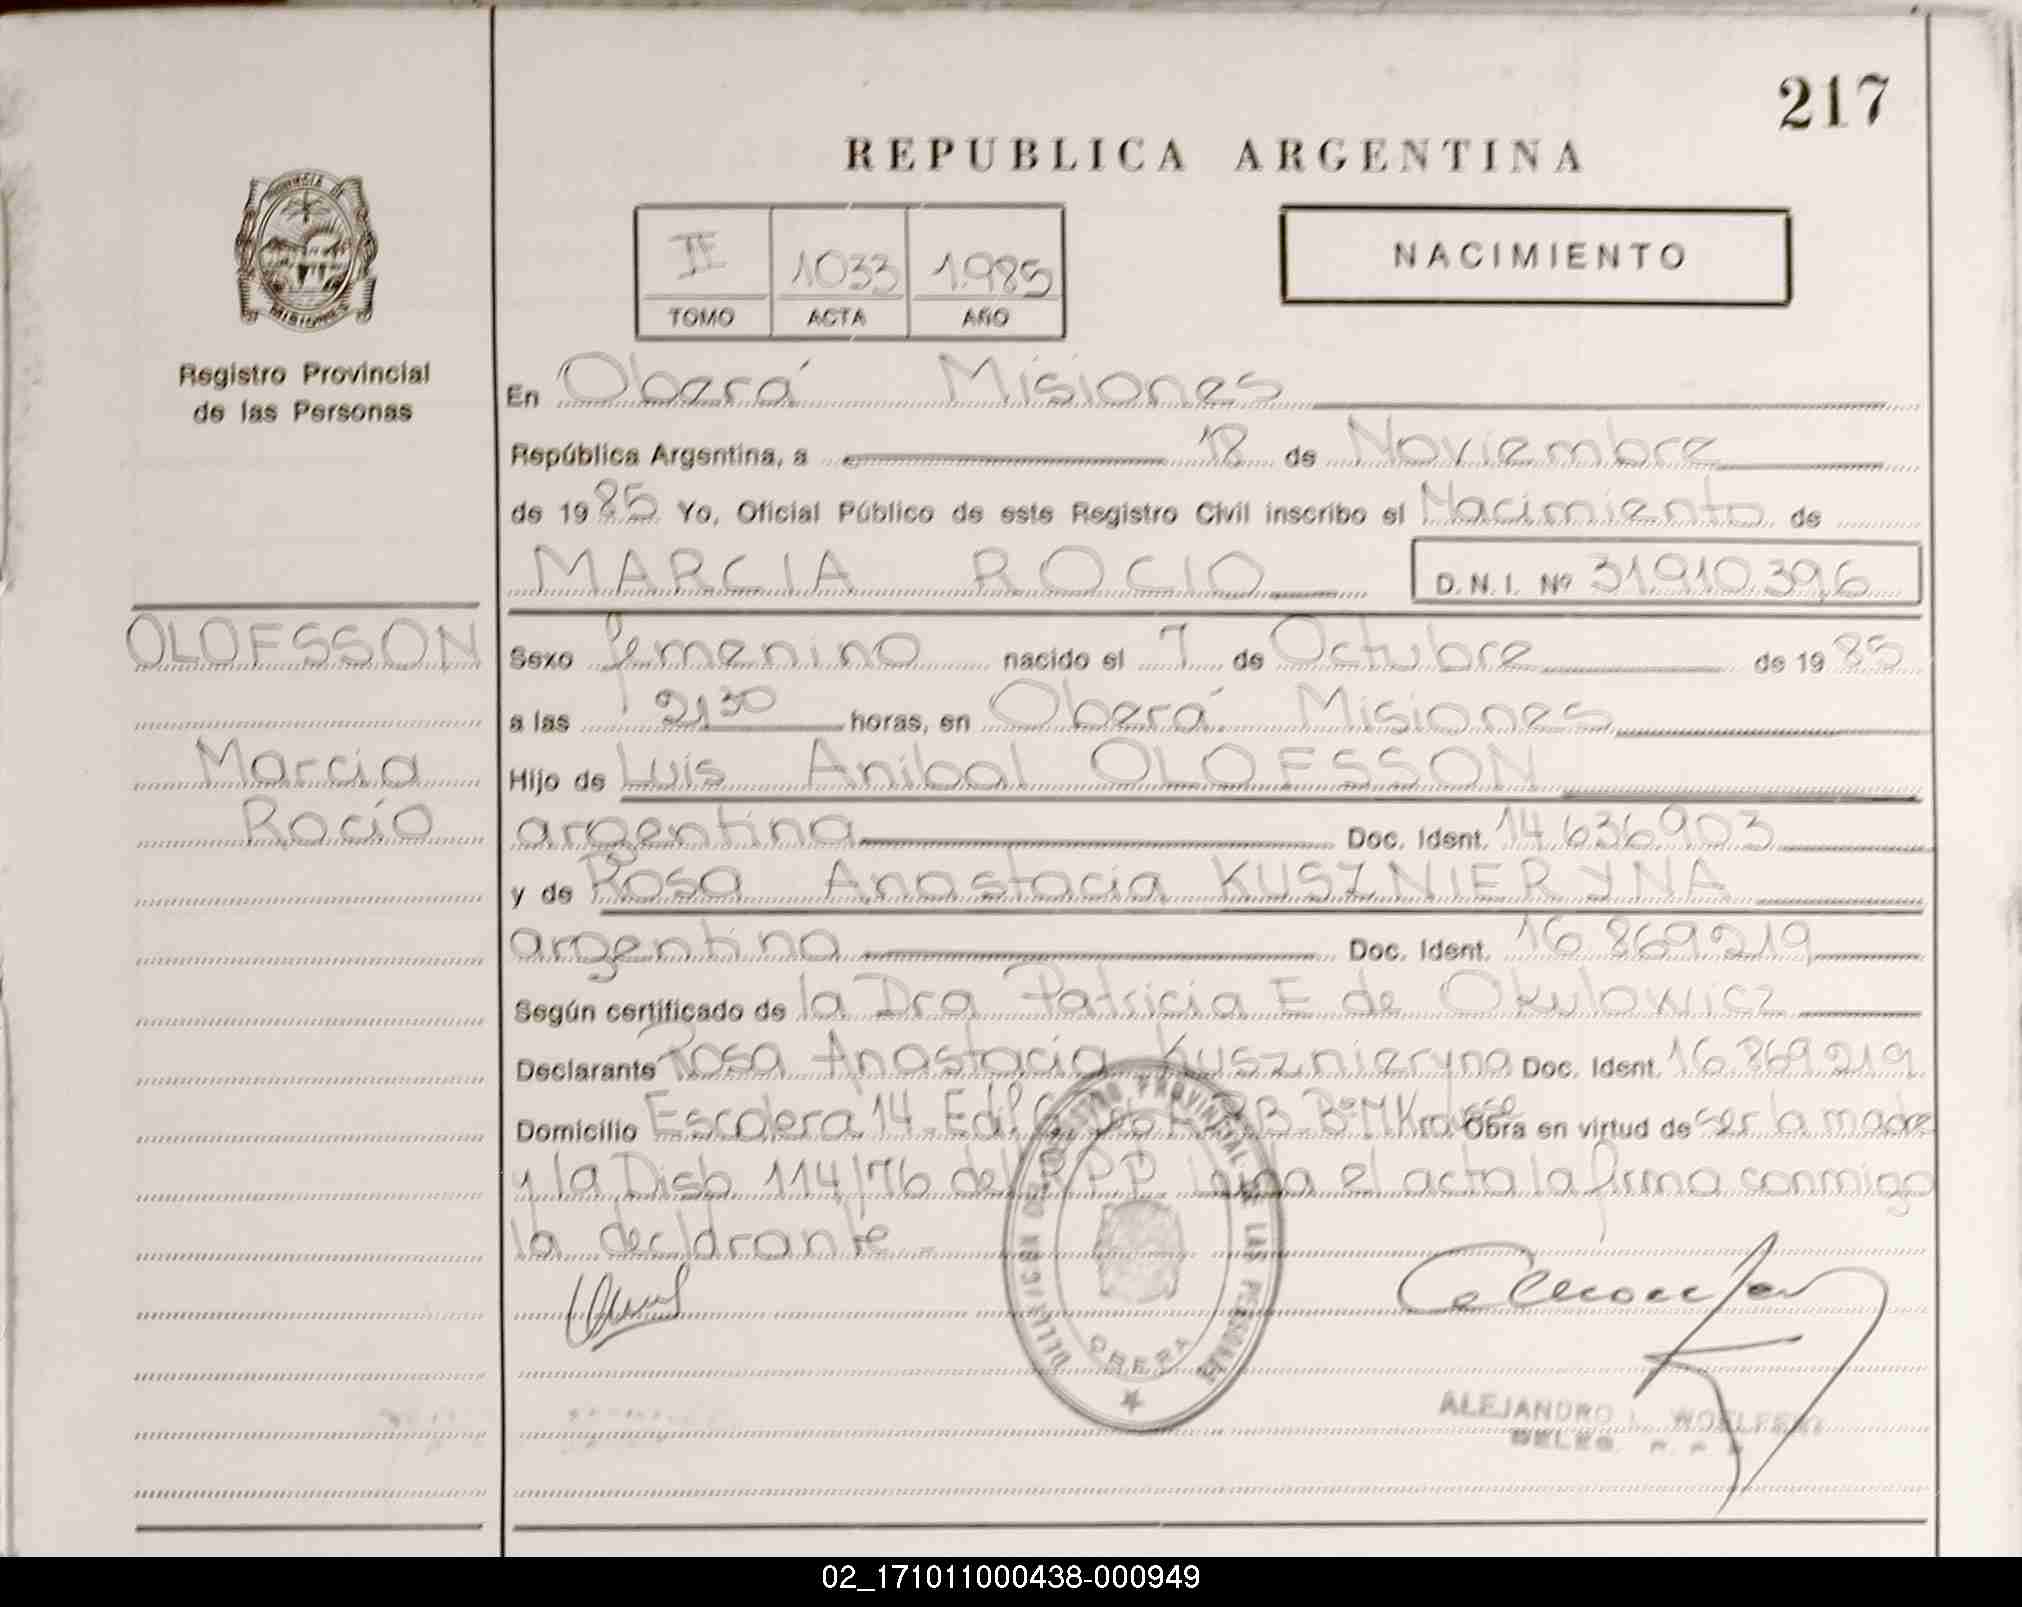 217
REPUBLICA ARGENTINA
PROVINCIA DE
MISIONES
Registro Provincial
de las Personas
II 1033 1.985
TOMO ACTA AÑO
NACIMIENTO
En Oberá Misiones
República Argentina, a 18 de Noviembre
de 1985 Yo, Oficial Público de este Registro Civil inscribo el Nacimiento de
MARCIA ROCIO D.N.I. Nº 31.910.396
OLOFSSON
Marcia
Rocío
Sexo femenino nacido el 7 de Octubre de 1985
a las 21,30 horas, en Oberá Misiones
Hijo de Luis Anibal OLOFSSON
argentina Doc. Ident. 14.636.903
y de Rosa Anastacia KUSZNIERYNA
argentina Doc. Ident. 16.869.219
Según certificado de la Dra Patricia E de Okulowicz
Declarante Rosa Anastacia Kusznieryna Doc. Ident. 16.869.219
Domicilio Escalera 14 Edif. Obra en virtud de ser la madre
y la Disp. 114/76 del R.P.P. el acta la firma conmigo
la declarante
REGISTRO PROVINCIAL DE LAS PERSONAS
OBERA
ALEJANDRO L.
DELEG. R. P. P.
02_171011000438-000949